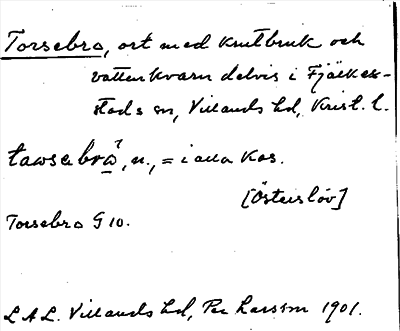 Torsebro, ort med krutbruk och
vattenkvarn delvis i Fjälke-
stads sn, Villands hd, Krist. l.
tawsebrò, n., = i alla kas.
[Österslöv]
Torsebro G 10.
L.A.L. Villands hd, Per Larsson 1901.